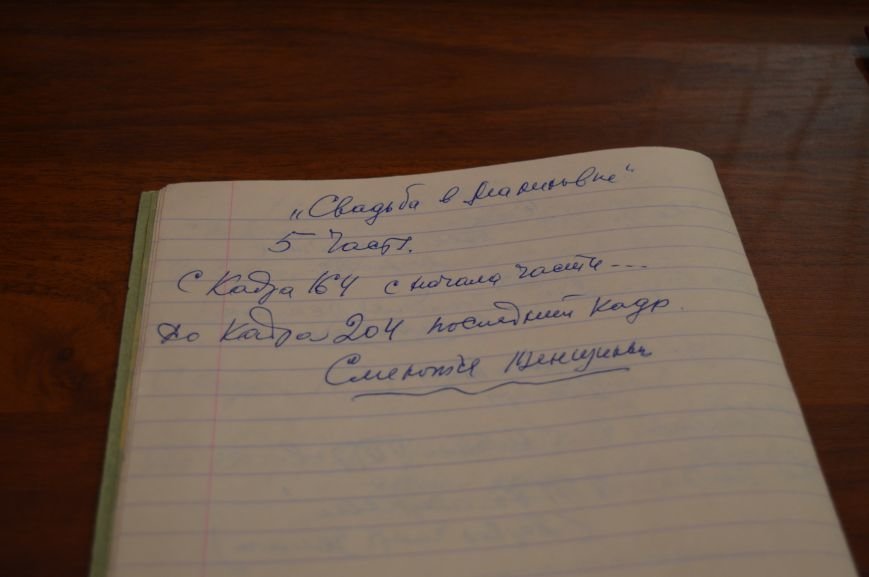 „Свадьба в Малиновке"
5 часть.
С Кадра 164 с начала части ---
до Кадра 204 последний кадр.
Смеются женщины